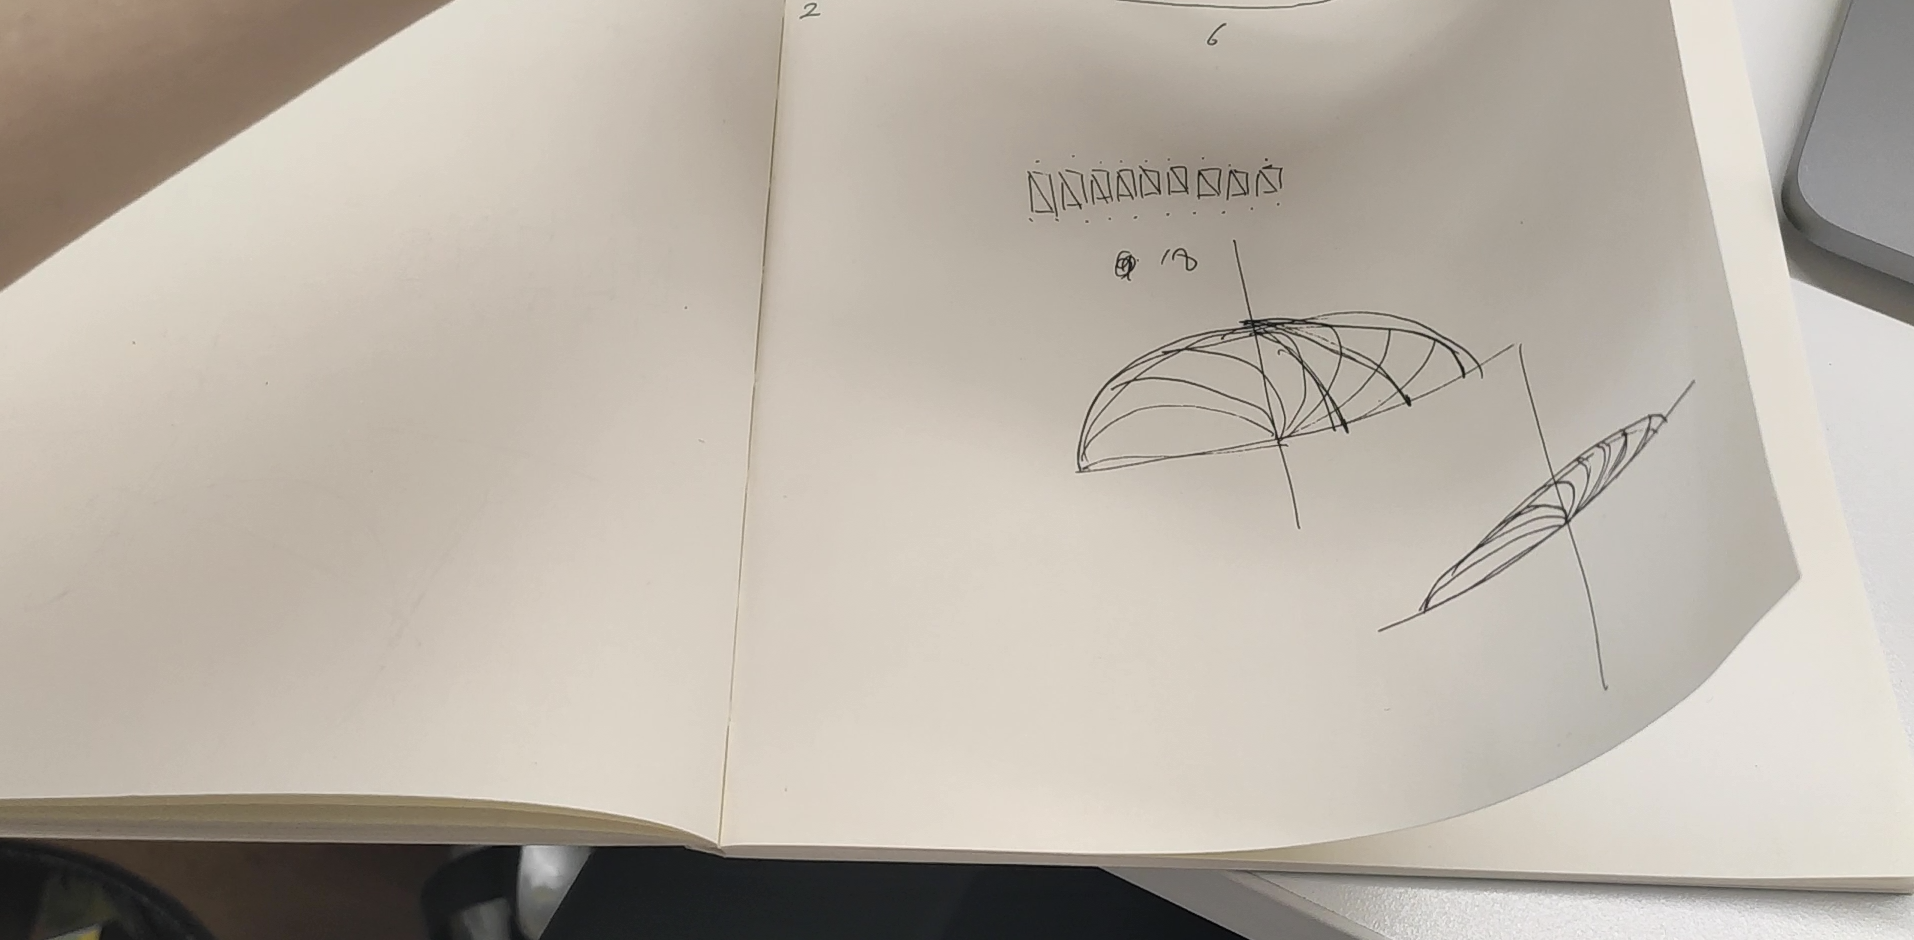 2
6
18